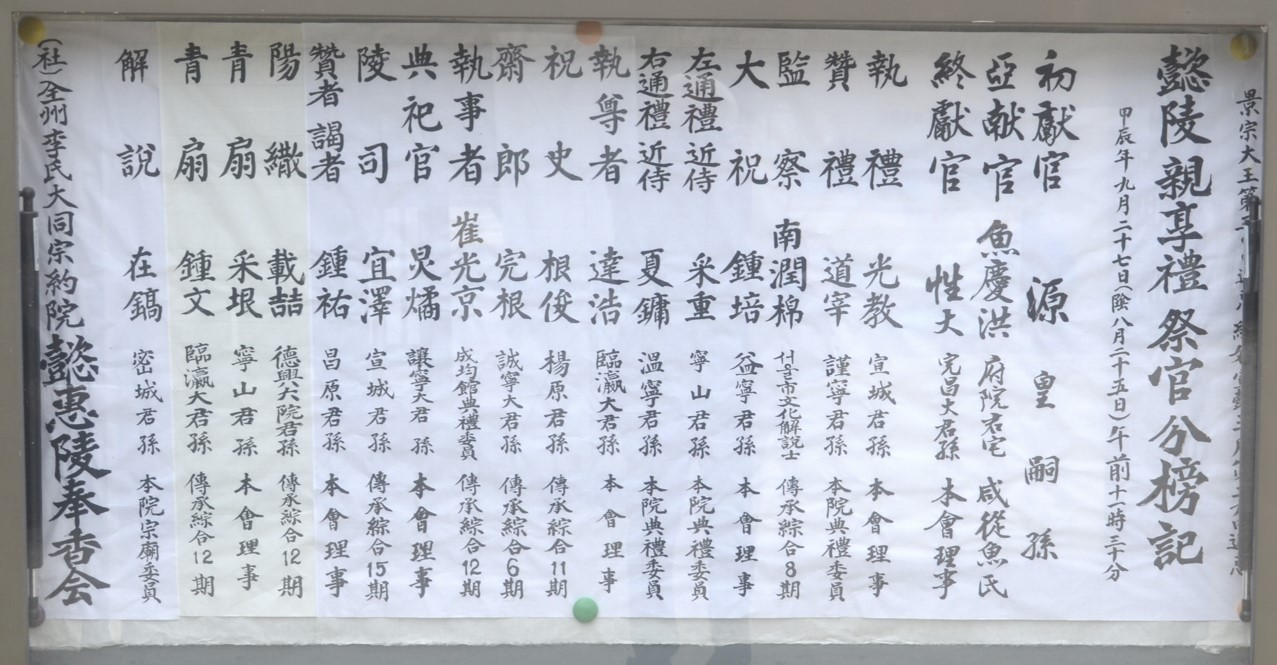 景宗大王第
懿陵親享禮 祭官分榜記
甲辰年九月二十七日(陰八月二十五日)午前十一時三十分
初獻官 源 皇嗣孫
亞献官 魚慶洪 府院君宅 咸從魚氏
終獻官 性大 完昌大君孫 本會理事
執禮 光教 宣城君孫 本會理事
贊禮 道宰 謹寧君孫 本院典禮委員
監察 南潤棉 서울市文化解說士 傳承綜合8期
大祝 鍾培 益寧君孫 本會理事
左通禮 近侍 采重 寧山君孫 本院典禮委員
右通禮 近侍 夏鏞 溫寧君孫 本院典禮委員
執尊者 達浩 臨瀛大君孫 本會理事
祝史 根俊 楊原君孫 傳承綜合11期
齋郎 完根 誠寧大君孫 傳承綜合6期
執事者 崔光京 成均館典禮委員 傳承綜合12期
典祀官 炅燏 讓寧大君孫 本會理事
陵司 宜澤 宣城君孫 傳承綜合15期
贊者 謁者 鍾祐 昌原君孫 本會理事
陽繖 載喆 德興大院君孫 傳承綜合12期
青扇 采垠 寧山君孫 本會理事
青扇 鍾文 臨瀛大君孫 傳承綜合12期
解說 在鎬 密城君孫 本院宗廟委員
(社)全州李氏大同宗約院 懿惠陵奉香会